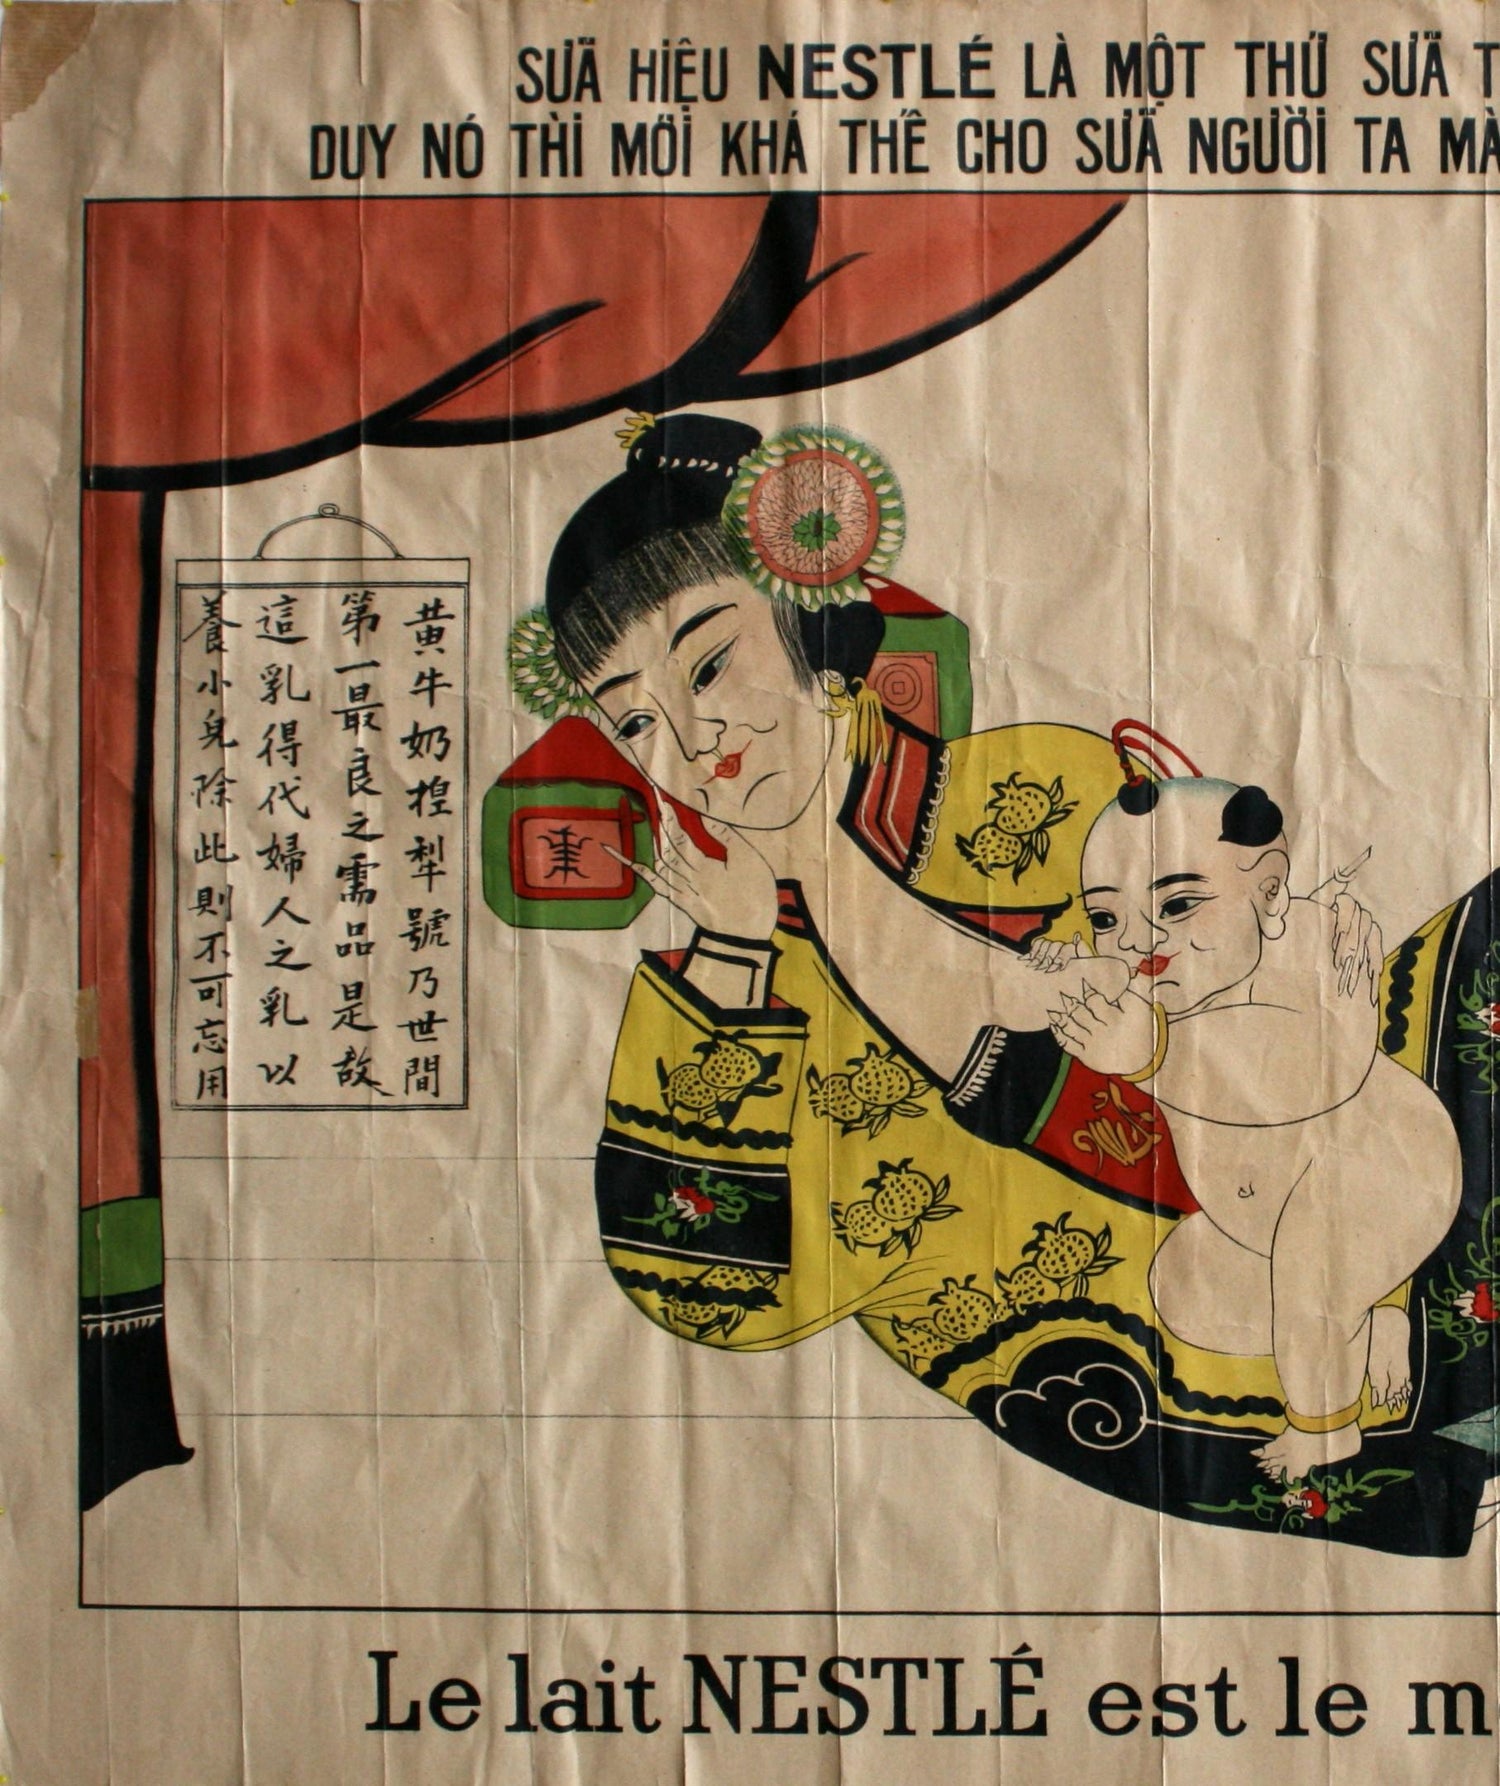 SỮA HIỆU NESTLÉ LÀ MỘT THỨ SỮA T
DUY NÓ THÌ MỚI KHẢ THẾ CHO SỮA NGƯỜI TA MÀ
黄牛奶揑犁號乃世間
第一最良之需品是故
這乳得代婦人之乳以
養小兒除此則不可忘用
Le lait NESTLÉ est le m